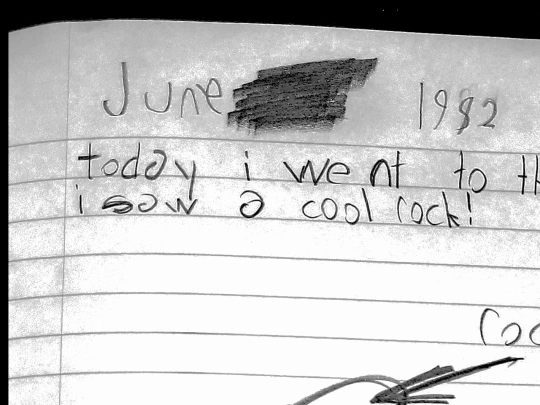 June 1982
today i went to th
i sow a cool rock!
roc